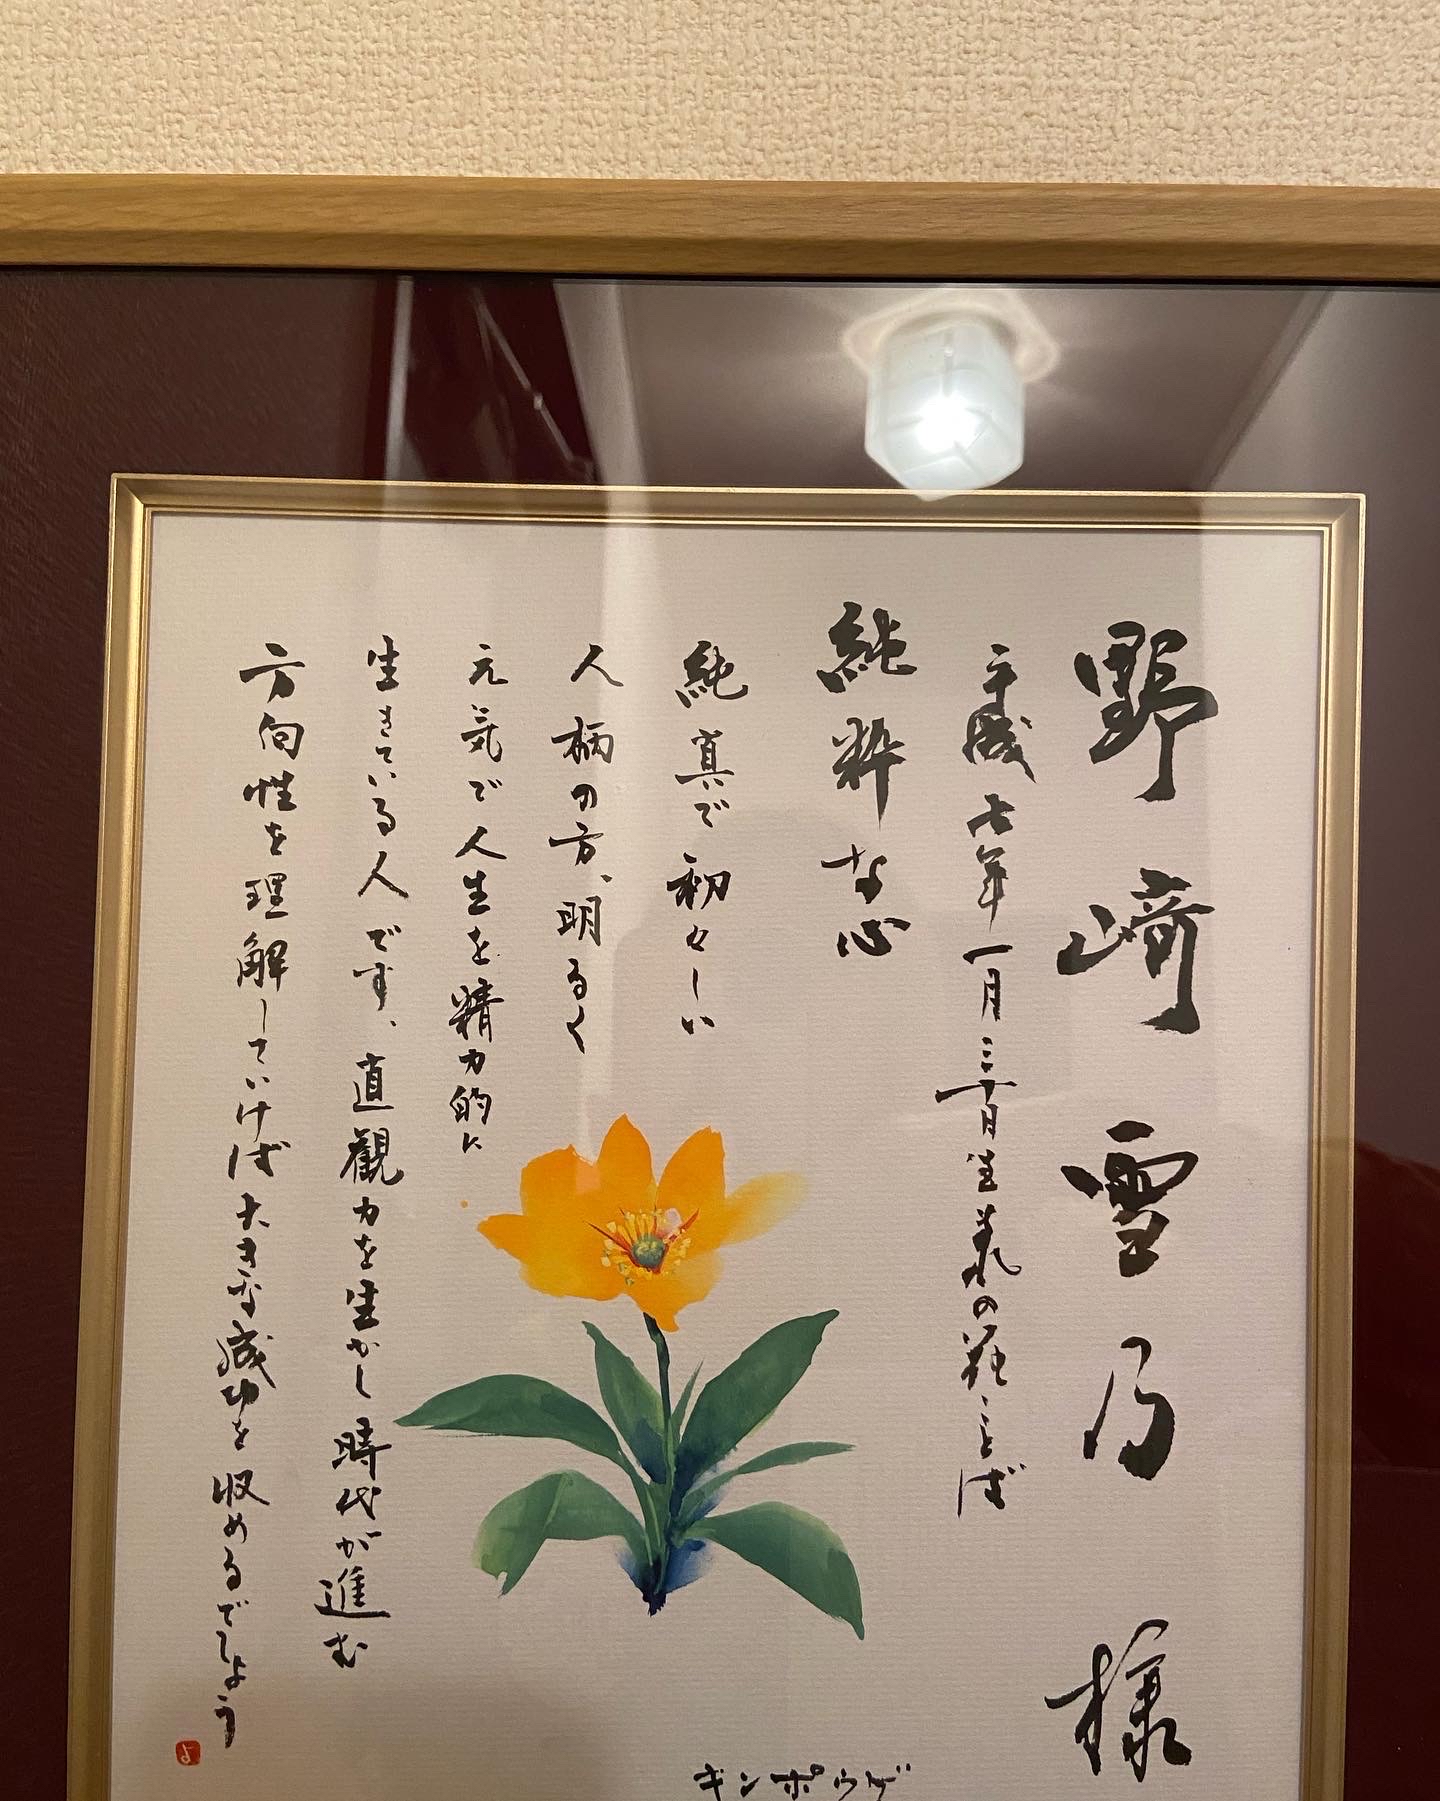 野﨑雪乃様
平成七年一月三十日生まれの花ことば
純粋な心
純真で初々しい
人柄の方、明るく
元気で人生を精力的に
生きている人です、直観力を生かし時代が進む
方向性を理解していけば大きな成功を収めるでしょう
よ
キンポウゲ